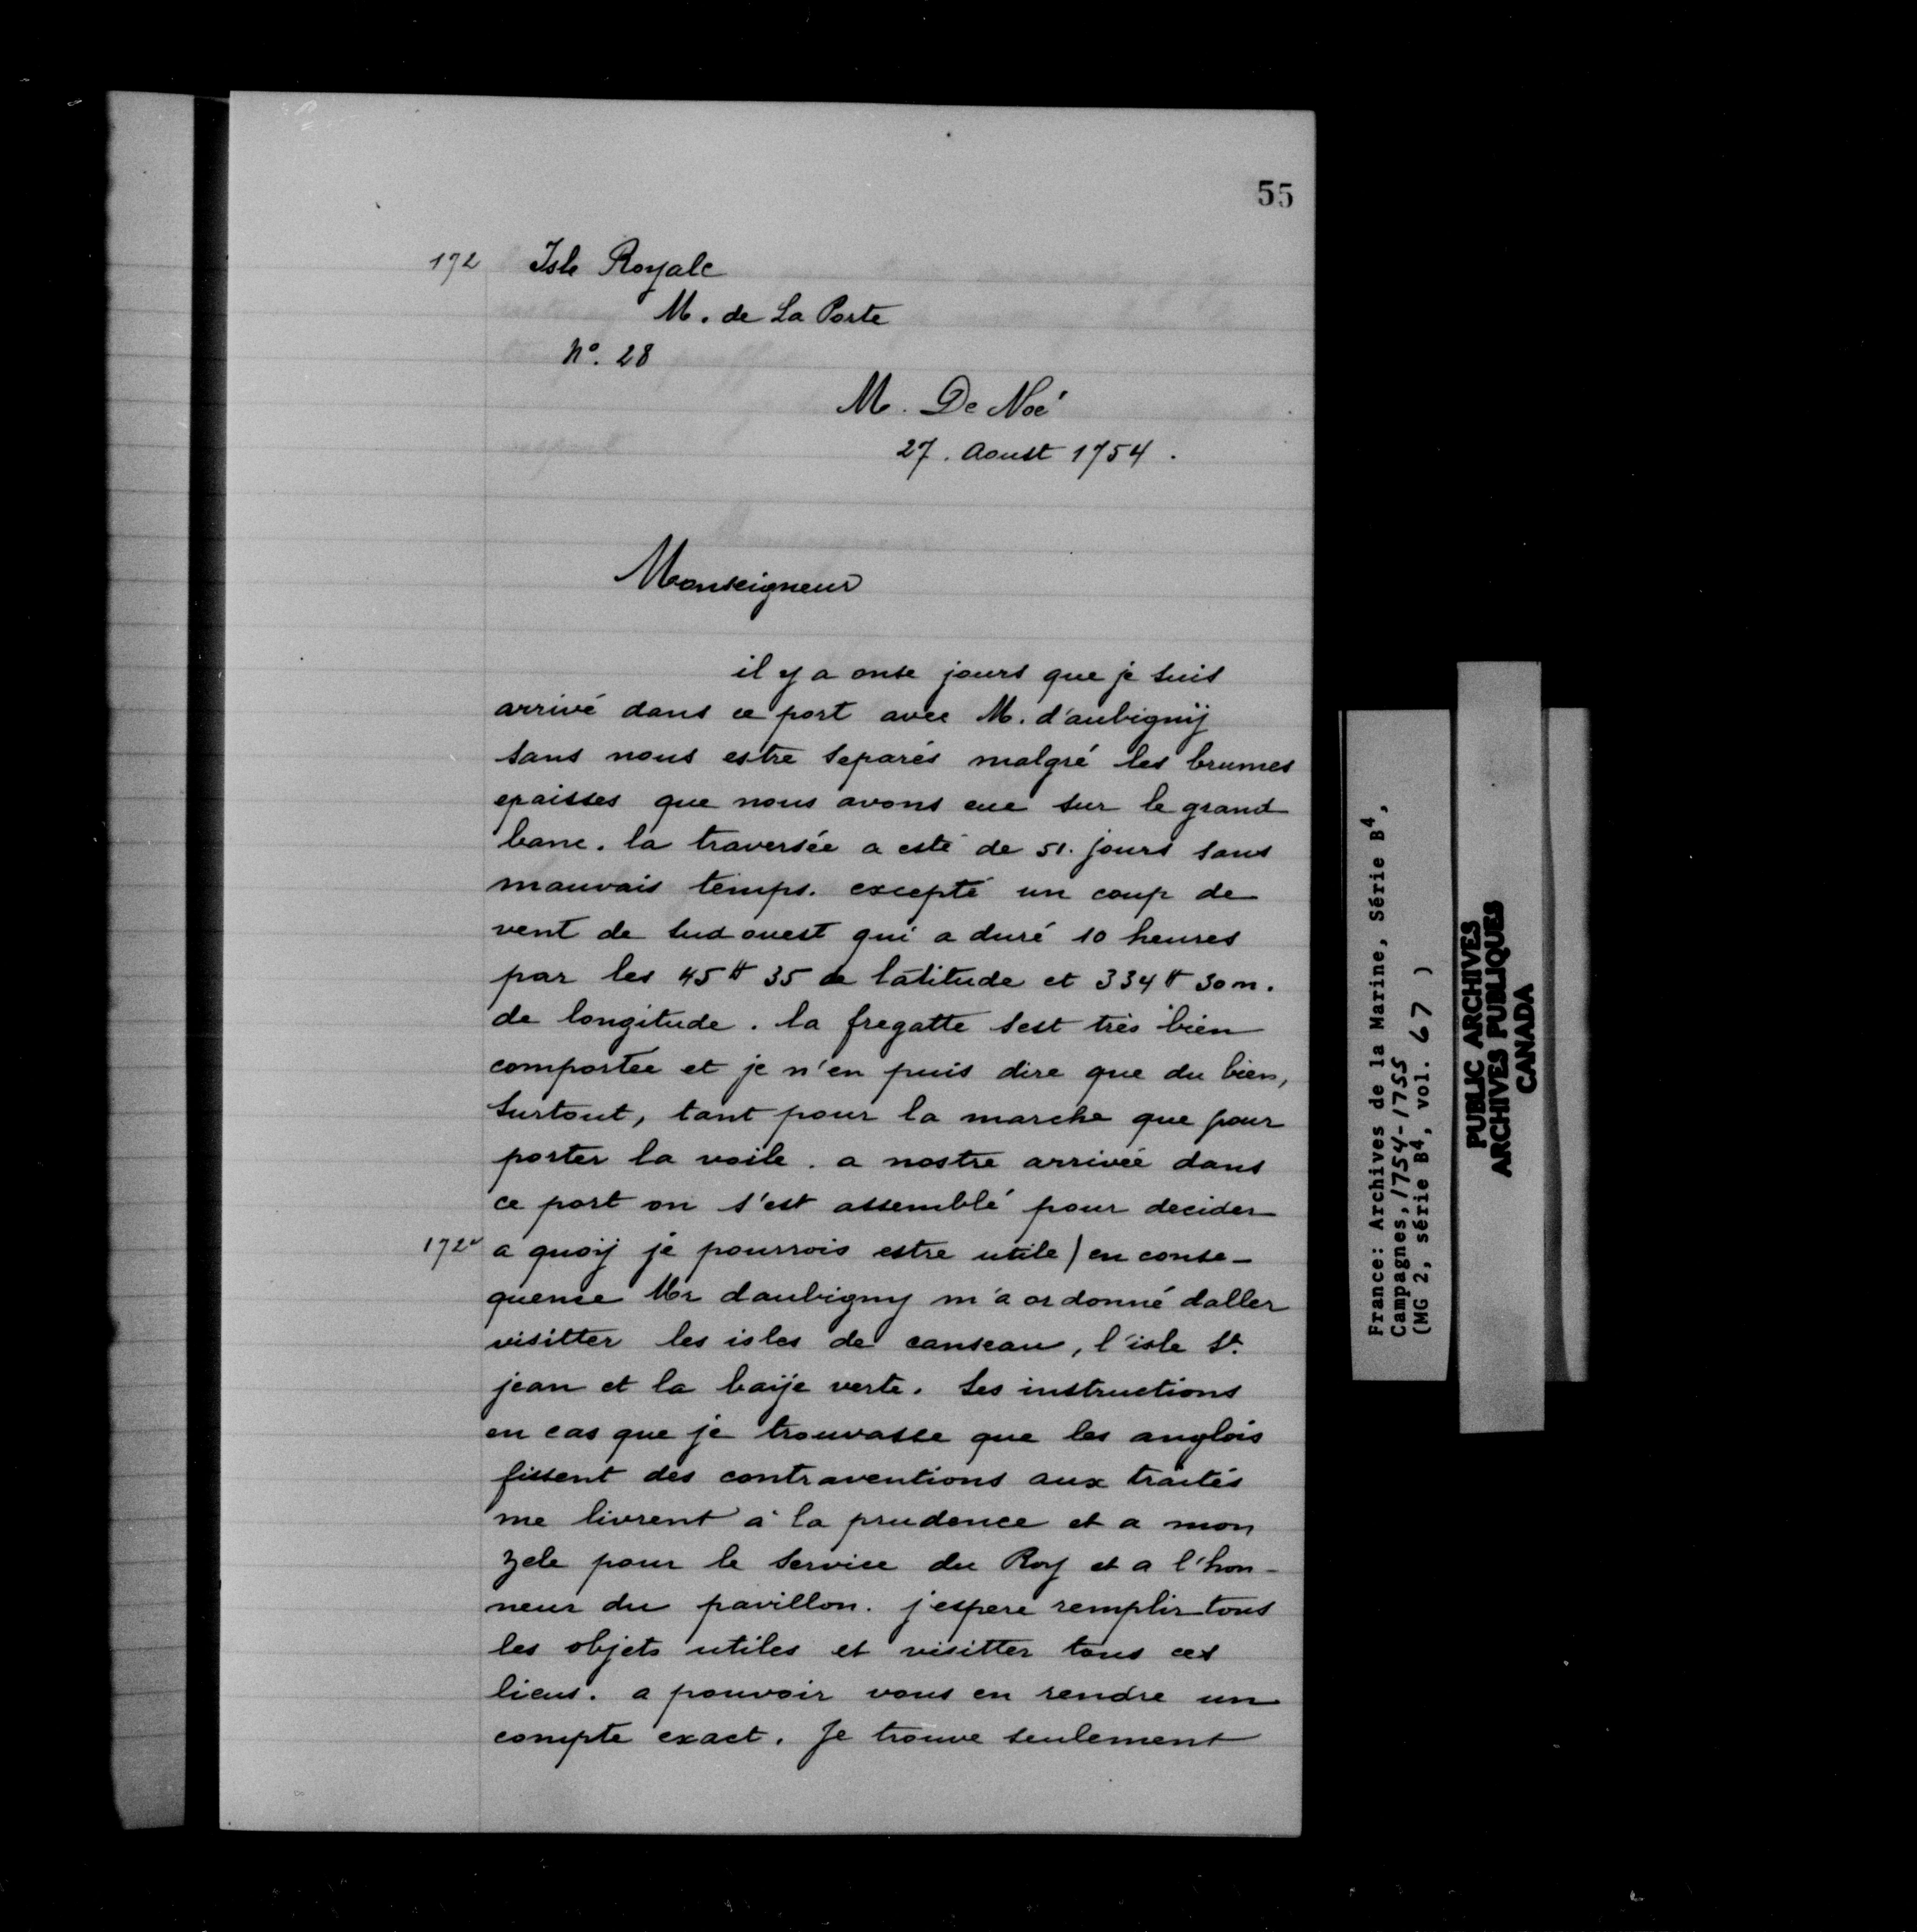 55
172 Isle Royale
M. de La Porte
No. 28
M. De Noé
27. Aoust 1754.
Monseigneur
il y a onse jours que je suis
arrivé dans ce port avec M. d'aubignÿ
sans nous estre separés malgré les brumes
epaisses que nous avons eue sur le grand
banc. la traversée a esté de 51. jours sans
mauvais temps. excepté un coup de
vent de sud ouest qui a duré 10 heures
par les 45 tt 35 de latitude et 334 tt 30 m.
de longitude. la fregatte sest très bien
comportée et je n'en puis dire que du bien,
surtout, tant pour la marche que pour
porter la voile. a nostre arrivée dans
ce port on s'est assemblé pour decider
172v a quoÿ je pourrois estre utile) en conse-
quence Mr daubigny m'a ordonné daller
visitter les isles de canseau, l'isle St.
jean et la baÿe verte. Ses instructions
en cas que je trouvasse que les anglois
fissent des contraventions aux traités
me livrent à la prudence et a mon
zele pour le service du Roy et a l'hon-
neur du pavillon. j'espere remplir tous
les objets utiles et visitter tous ces
lieus. a pouvoir vous en rendre un
compte exact. Je trouve seulement
France: Archives de la Marine, Série B4,
Campagnes, 1754-1755
(MG 2, série B4, vol. 67 )
PUBLIC ARCHIVES
ARCHIVES PUBLIQUES
CANADA